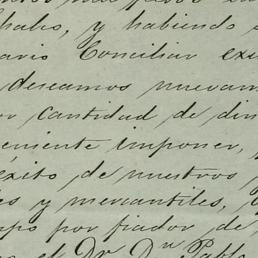 hales, y habiendo
ario Conciliar ex
deseamos nuevam
or cantidad de din
eniente imponer,
éxito de nuestros
es y mercantiles,
mpo por fiador de
el Dr. Dn. Pabl